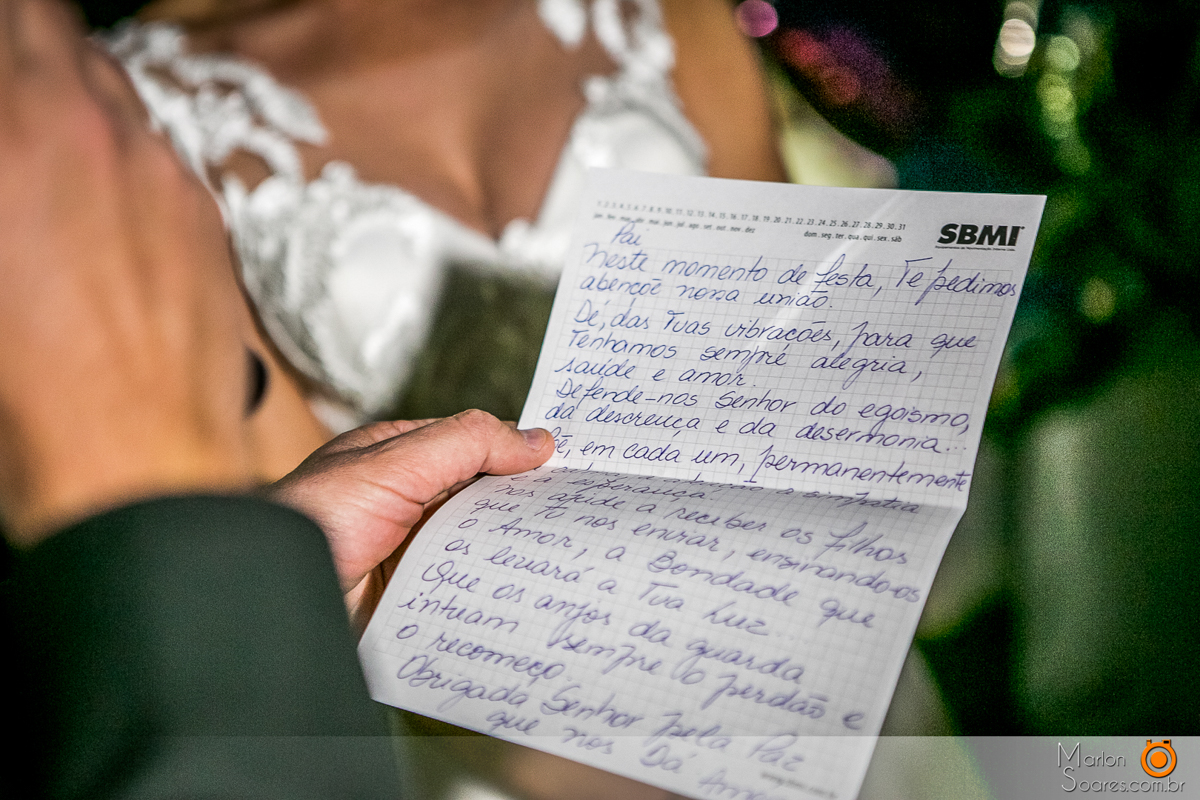 1 2 3 4 5 6 7 8 9 10 11 12 13 14 15 16 17 18 19 20 21 22 23 24 25 26 27 28 29 30 31
jan fev mar abr mai jun jul ago set out nov dez dom seg ter qua qui sex sáb
SBMI
Pai
Neste momento de festa, Te pedimos
abençõe nossa união.
Dê, das Tuas vibrações, para que
Tenhamos sempre alegria,
saúde e amor.
Defende-nos Senhor do egoismo,
da descrença e da desermonia...
em cada um, permanentemente
a simpatia
e a esperança
nos ajude a receber os filhos
que Tu nos enviar, ensinando-os
o Amor, a Bondade que
os levará a Tua Luz.
Que os anjos da guarda
intuam sempre o perdão e
o recomeço.
Obrigada Senhor pela Paz
que nos Dá
Marlon
Soares.com.br